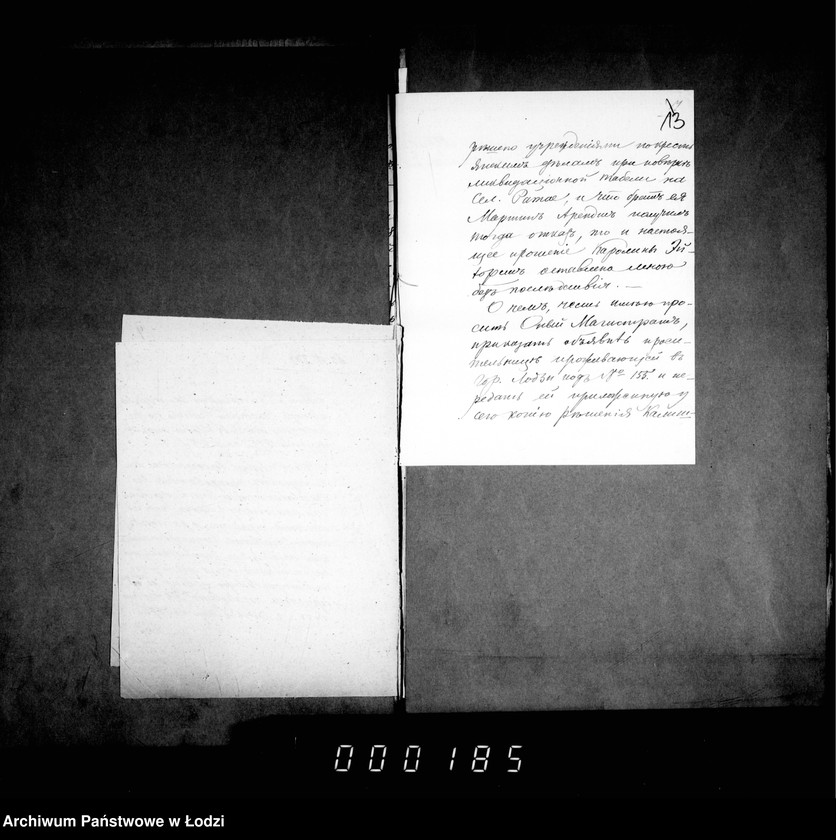 13
рѣшено учрежденіями по крестъ-
янскимъ дѣламъ при повѣркѣ
ликвидаціонной табели на
сел. Ратае, и что братъ ея
Мартинъ Арендтъ получилъ
тогда отказъ, то и настоя-
щее прошеніе Каролины
оставлено мною
безъ послѣдствій. —
О чемъ, честь имѣю про-
сить Оный Магистратъ,
приказать объявить проси-
тельницѣ проживающей въ
гор. Лодзи подъ № 155. и пе-
редать ей прилагаемую у
сего копію рѣшенія Калиш-
000185
Archiwum Państwowe w Łodzi